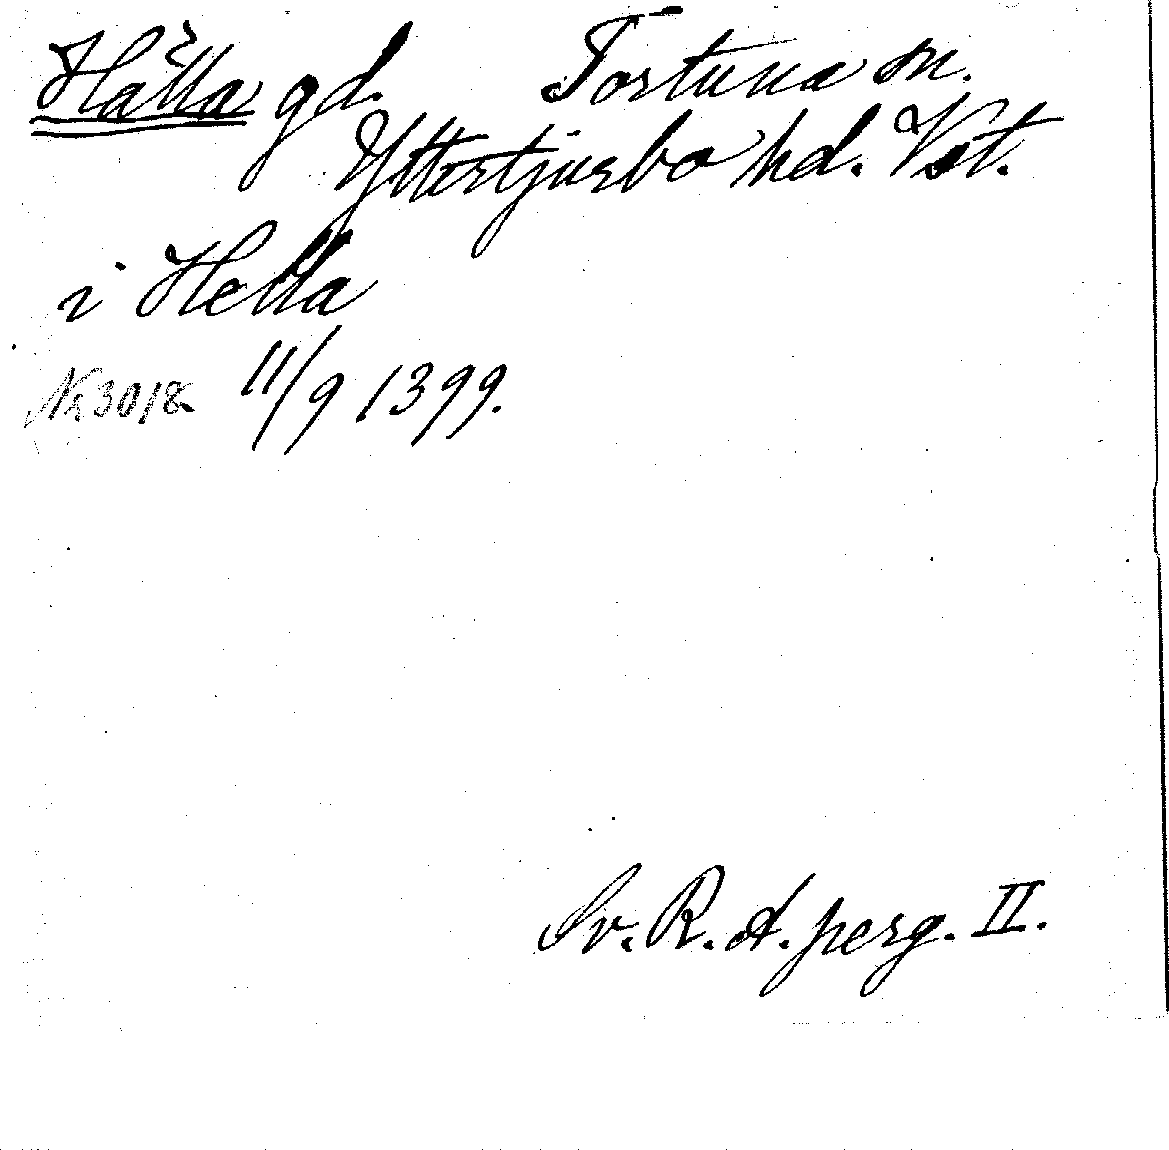 Hälla gd. Tortuna sn.
Yttertjurbo hd. Vst.
i Hella
Nr 3018 11/9 1399.
Sv. R. A. perg. II.